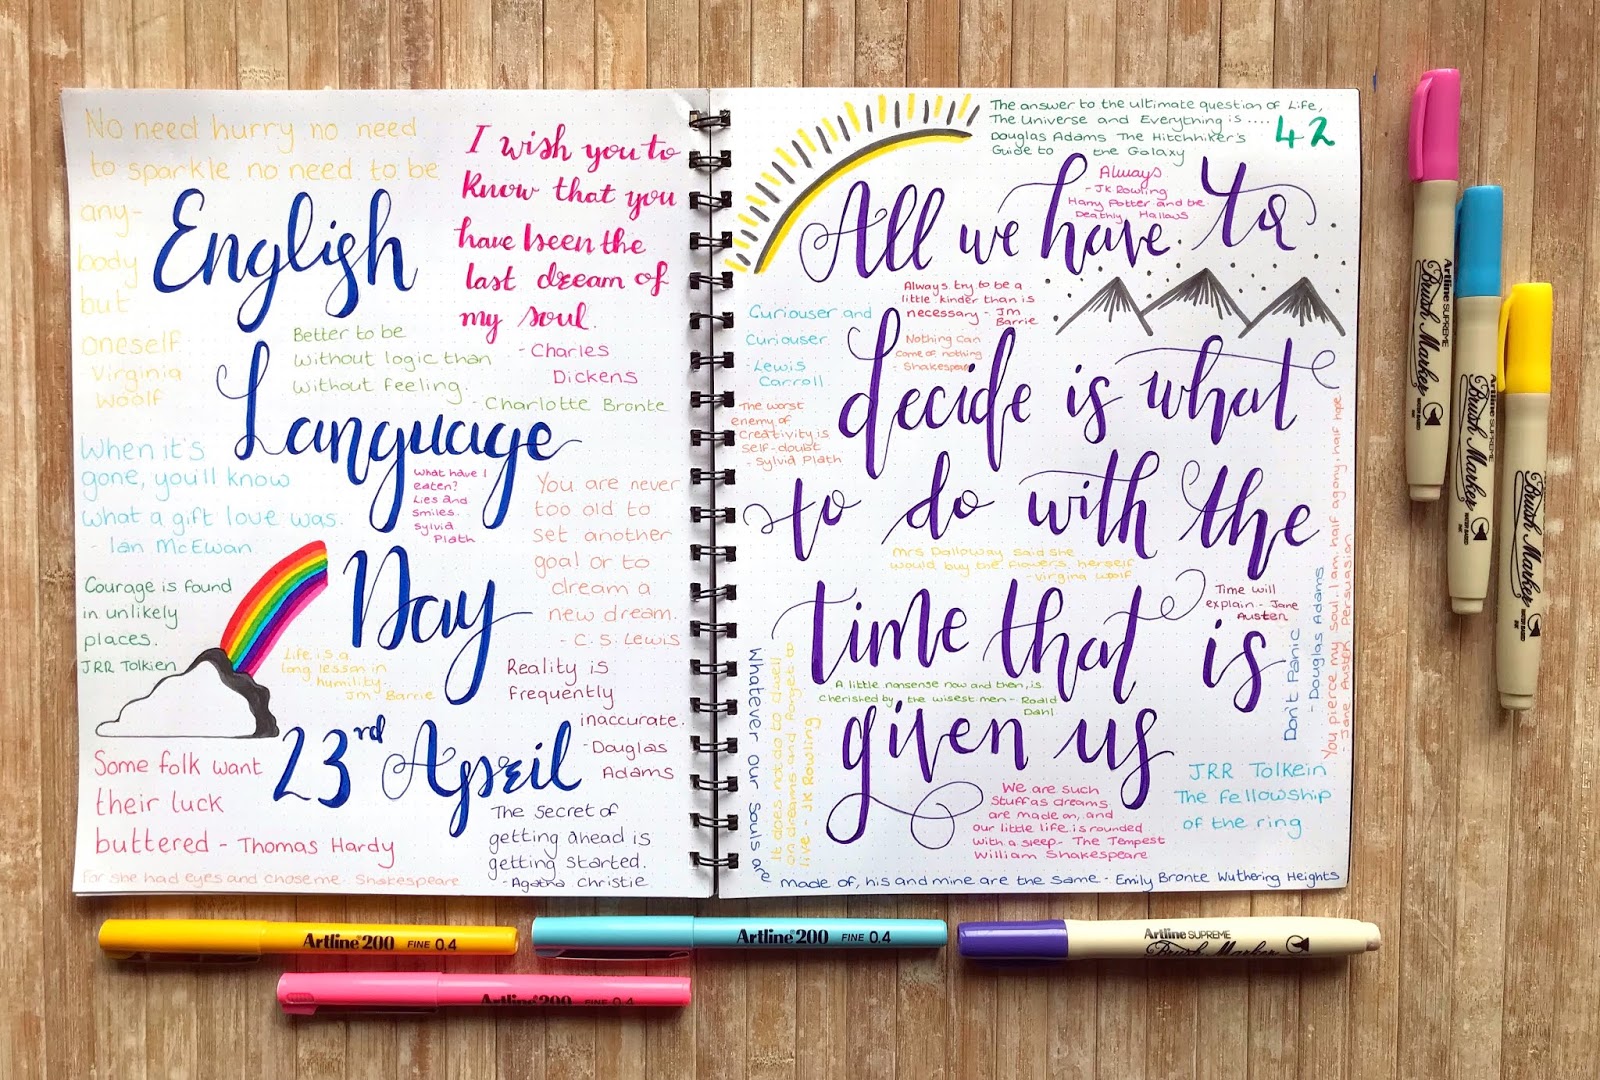 No need hurry no need
to sparkle no need to be
any-
body
but
oneself
Virginia
Woolf
English
Language
Day
23rd April
I wish you to
know that you
have been the
last dream of
my soul.
- Charles
Dickens
Better to be
without logic than
without feeling.
- Charlotte Bronte
When it's
gone, you'll know
what a gift love was.
- Ian McEwan
What have I
eaten?
Lies and
smiles.
Sylvia
Plath
You are never
too old to
set another
goal or to
dream a
new dream.
- C.S. Lewis
Courage is found
in unlikely
places.
JRR Tolkien
Life is a
long lesson in
humility.
Jm Barrie
Reality is
frequently
inaccurate.
- Douglas
Adams
Some folk want
their luck
buttered - Thomas Hardy
The secret of
getting ahead is
getting started.
- Agatha Christie
for she had eyes and chose me. Shakespeare
The answer to the ultimate question of Life,
The Universe and Everything is ....
Douglas Adams The Hitchhiker's
Guide to the Galaxy
42
All we have to
decide is what
to do with the
time that is
given us
Always
- JK Rowling
Harry Potter and be
Deathly Hallows
Always try to be a
little kinder than is
necessary - Jm
Barrie
Curiouser and
Curiouser
- Lewis
Carroll
Nothing can
come of nothing
- Shakespeare
The worst
enemy of
creativity is
self-doubt
- Sylvia Plath
Mrs Dalloway said she
would buy the flowers herself
- Virginia Woolf
Time will
explain - Jane
Austen
A little nonsense now and then, is
cherished by the wisest men - Roald
Dahl
Don't Panic
- Douglas Adams
You pierce my soul. I am half agony, half hope
- Jane Austen Persuasion
JRR Tolkein
The fellowship
of the ring
We are such
stuff as dreams
are made on, and
our little life is rounded
with a sleep - The Tempest
William Shakespeare
It does not do to dwell
on dreams and forget to
live - JK Rowling
Whatever our souls are
made of, his and mine are the same - Emily Bronte Wuthering Heights
Artline SUPREME
Brush Marker
WATER BASED
INK
Artline SUPREME
Brush Marker
WATER BASED
INK
Artline SUPREME
Brush Marker
WATER BASED
INK
Artline 200 FINE 0.4
Artline 200 FINE 0.4
Artline SUPREME
Brush Marker
Artline 200 FINE 0.4